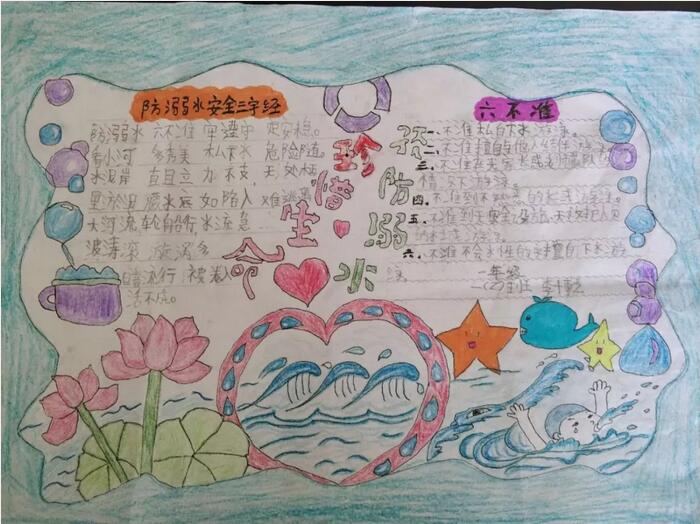 防溺水安全三字经
防溺水 六不准 牢遵守 定安稳。
秀小河 多秀美 私下水 危险随
水泥岸 直且立 力不支 无处栖
里淤泥 陷 如陷入 难逃离
大河流 轮船行 水流急
波涛深 漩涡多
暗流行 被卷入
活不成。
珍惜生命
预防溺水
六不准
一、不准私自下水游泳。
二、不准擅自与他人结伴游泳
三、不准在无家长或老师带队
情况下游泳。
四、不准到不熟悉的水域游泳。
五、不准到无安全设施、无救护人员
的水域游泳
六、不准不会水性的学生擅自下水施
救
一年级